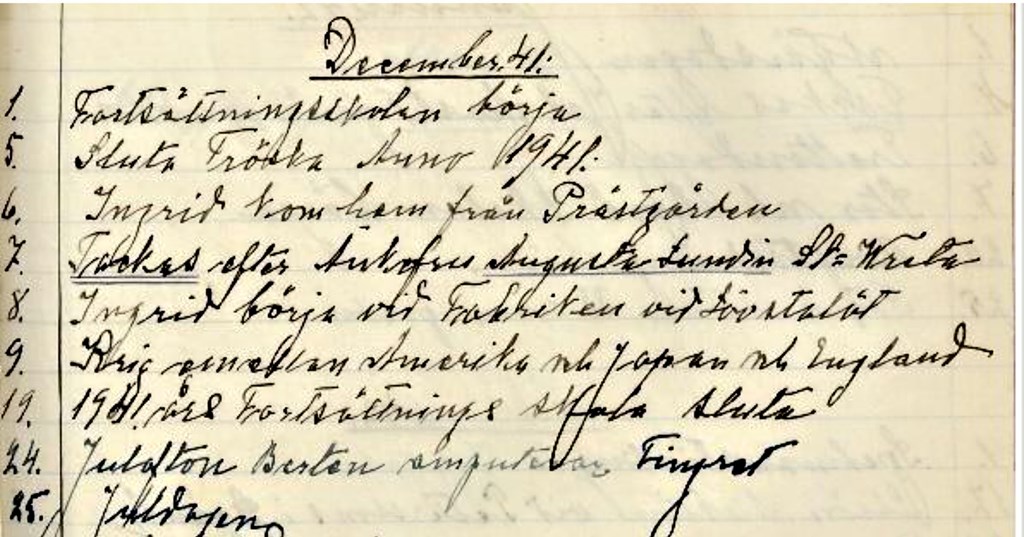 December. 41:
1. Fortsättningsskolan börja
5. Sluta Tröska Anno 1941.
6. Ingrid kom hem från Prästgården
7. Tackas efter Änkefru Augusta Lundin St= Wreta
8. Ingrid börja vid Fabriken vid Lövstalöt
9. Krig emellan Amerika och Japan och England
19. 1941. års Fortsättnings skola sluta
24. Julafton Berten amputerar Fingret
25. Juldagen